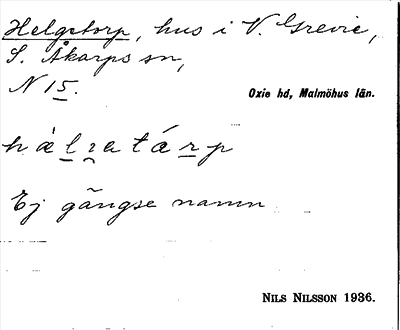 Helgetorp, hus i V. Grevie,
S. Åkarps sn,
N 15.
Oxie hd, Malmöhus län.
Ej gängse namn
NILS NILSSON 1936.